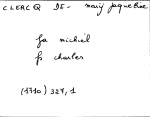 CLERCQ DE - marij jaqueline
fa michiel
fs charles
(1710) 327, 1